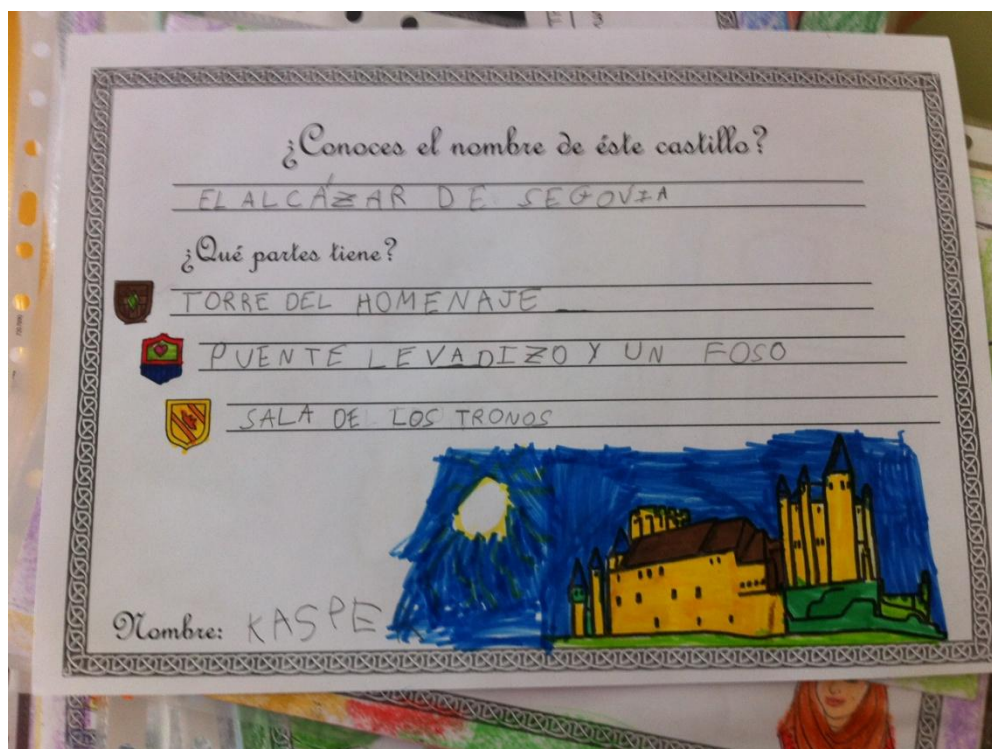 ¿Conoces el nombre de éste castillo?
EL ALCÁZAR DE SEGOVIA
¿Qué partes tiene?
TORRE DEL HOMENAJE
PUENTE LEVADIZO Y UN FOSO
SALA DE LOS TRONOS
Nombre: KASPE